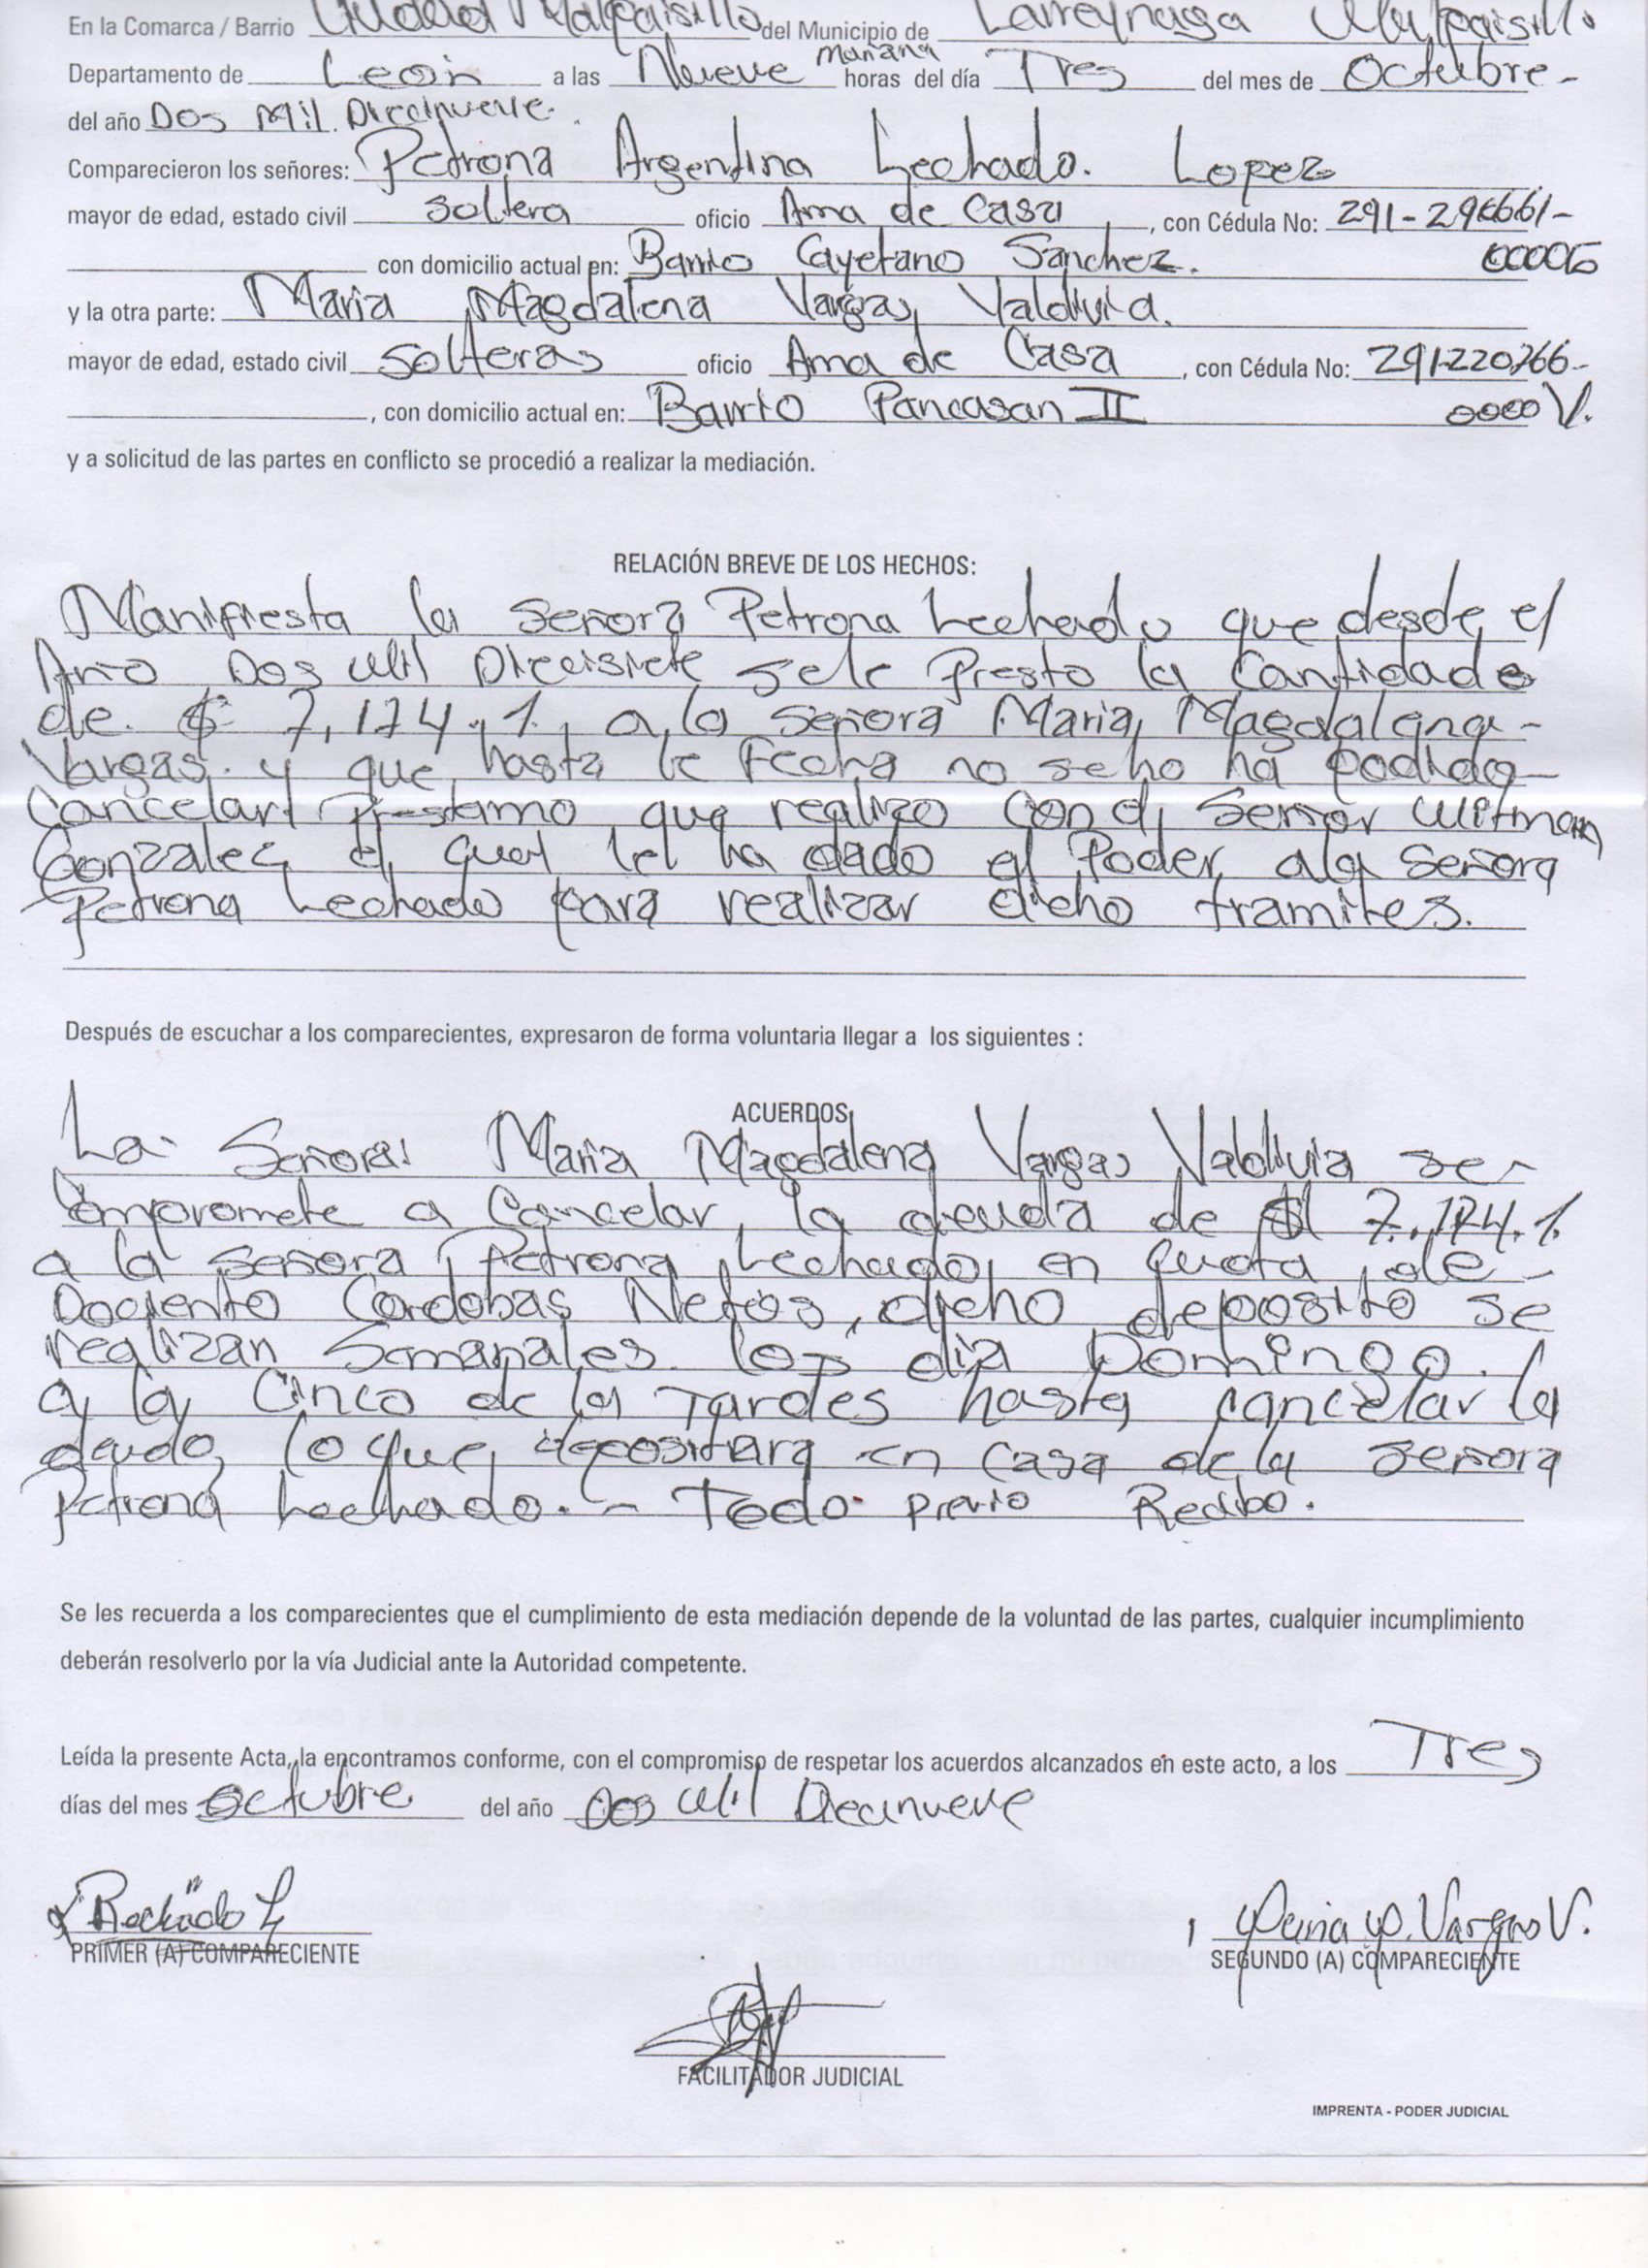 En la Comarca / Barrio Ciudad Malpaisillo del Municipio de Larreynaga Malpaisillo
Departamento de León a las Nueve mañana horas del día Tres del mes de Octubre -
del año Dos Mil Diecinueve.
Comparecieron los señores: Petrona Argentina Lechado. Lopez
mayor de edad, estado civil soltera oficio Ama de Casa, con Cédula No: 291-
con domicilio actual en: Barrio Cayetano Sanchez.
y la otra parte: Maria Magdalena Vargas Valdivia.
mayor de edad, estado civil solteras oficio Ama de Casa, con Cédula No: 291-220766-
, con domicilio actual en: Barrio Pancasan II 0000V.
y a solicitud de las partes en conflicto se procedió a realizar la mediación.
RELACIÓN BREVE DE LOS HECHOS:
Manifiesta la señora Petrona Lechado que desde el
Año Dos Mil Diecisiete se le Presto la Cantidad
de $ 7,174.1, a la señora Maria Magdalena -
Vargas. y que hasta la Fecha no se ha podido -
Cancelar Prestamo que realizo con el Señor Witman
Gonzalez el cual le ha dado el Poder a la señora
Petrona Lechado para realizar dicho tramites.
Después de escuchar a los comparecientes, expresaron de forma voluntaria llegar a los siguientes :
ACUERDOS
La Señora: Maria Magdalena Vargas Valdivia se -
Compromete a Cancelar, la deuda de $ 7.174.1.
a la señora Petrona Lechado, en quota de -
Dociento Cordobas Netos, dicho deposito se
realizan Semanales. los dia Domingo.
a la Cinco de la Tardes hasta cancelar la
deuda, lo que depositara en Casa de la señora
Petrona Lechado. - Todo previo Recibo.
Se les recuerda a los comparecientes que el cumplimiento de esta mediación depende de la voluntad de las partes, cualquier incumplimiento
deberán resolverlo por la vía Judicial ante la Autoridad competente.
Leída la presente Acta, la encontramos conforme, con el compromiso de respetar los acuerdos alcanzados en este acto, a los Tres
días del mes octubre del año Dos Mil Diecinueve
PRIMER (A) COMPARECIENTE
Vargas V.
SEGUNDO (A) COMPARECIENTE
FACILITADOR JUDICIAL
IMPRENTA - PODER JUDICIAL